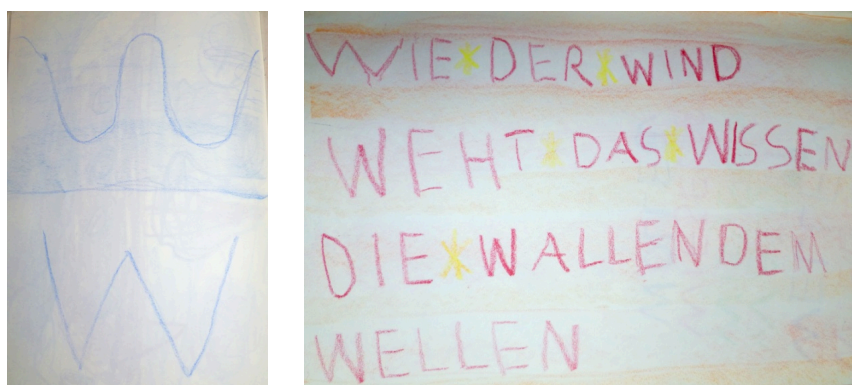 W
W
WIE*DER*WIND
WEHT*DAS*WISSEN
DIE*WALLENDEM
WELLEN